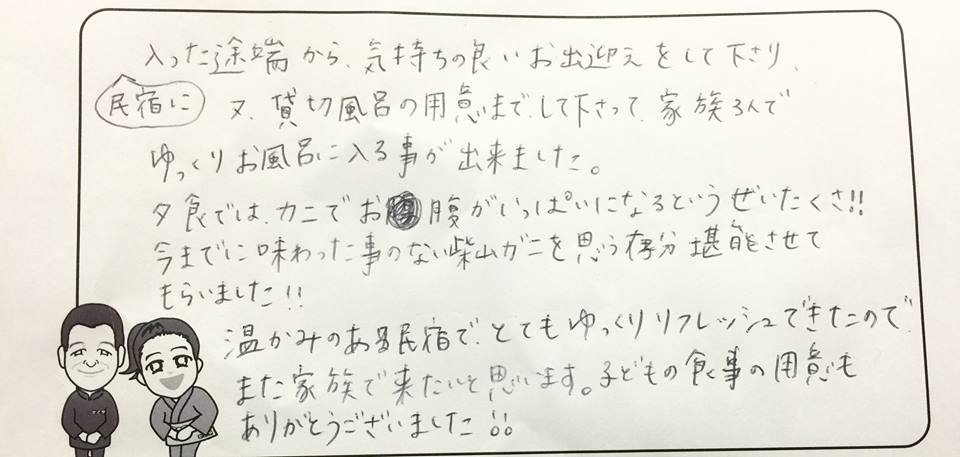 民宿に
入った途端から、気持ちの良いお出迎えをして下さり、
又、貸切風呂の用意まで、して下さって、家族3人で
ゆっくりお風呂に入る事が出来ました。
夕食では、カニでお腹がいっぱいになるというぜいたくさ!!
今までに味わった事のない柴山ガニを思う存分堪能させて
もらいました!!
温かみのある民宿で、とてもゆっくりリフレッシュできたので、
また家族で来たいと思います。子どもの食事の用意も
ありがとうございました!!